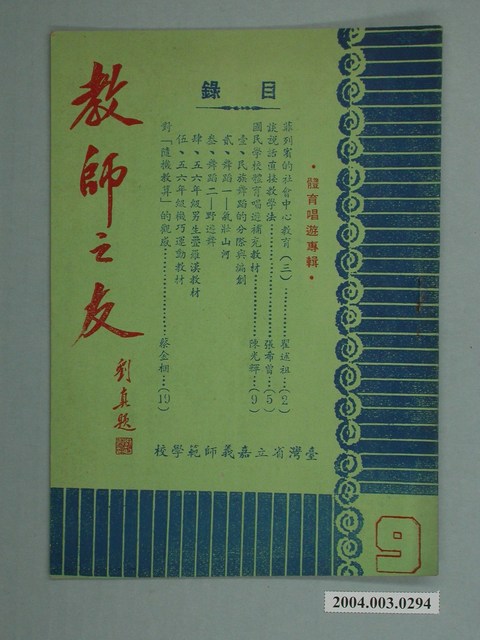 教師之友
劉真題
目錄
•體育唱遊專輯•
菲列賓的社會中心教育(三)…………翟述祖…(2)
談說話直接教學法…………張希曾…(5)
國民學校體育唱遊補充教材…………陳光輝…(9)
壹、民族舞蹈的分際與編創
貳、舞蹈一—氣壯山河
叁、舞蹈二—野遊舞
肆、五六年級男生疊羅漢教材
伍、五六年級機巧運動教材
對「隨機教算」的觀感…………蔡金相…(19)
臺灣省立嘉義師範學校
9
2004.003.0294